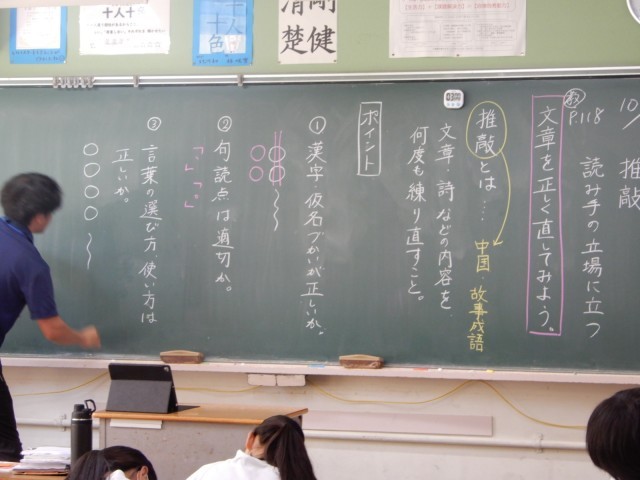 剛健
清楚
十人
十色
十人十
10/
推敲
読み手の立場に立つ
P.118
文章を正しく直してみよう。
推敲とは…
中国 故事成語
文章・詩などの内容を、
何度も練り直すこと。
ポイント
① 漢字・仮名づかいが正しいか。
○○〜
○○
② 句読点は適切か。
「、」「。」
③ 言葉の選び方、使い方は
正しいか。
○○○○〜